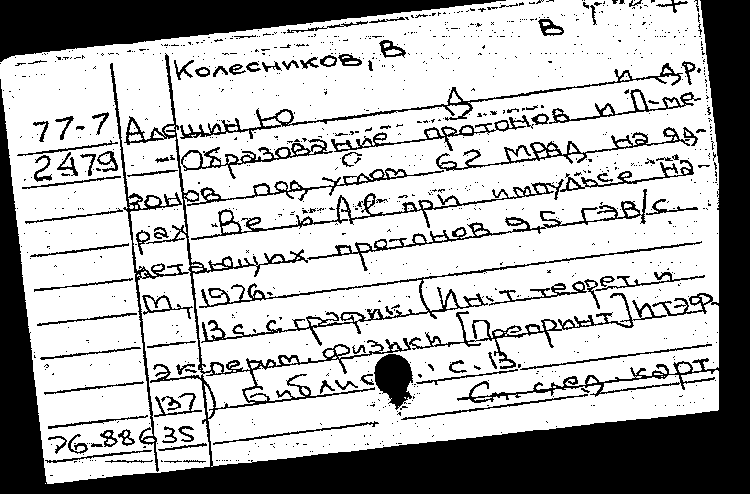 Колесников, В В
77-7 Алешин, Ю Д и др.
2479 - Образование протонов и П-ме-
зонов под углом 62 мрад на яд-
рах Be и Al при импульсе на-
летающих протонов 9,5 ГэВ/с.
М., 1976.
13 с. с график. (Ин-т теорет. и
эксперим. физики. [Препринт] ИТЭФ
137). Библиогр.: с. 13.
См. след. карт.
76-88635